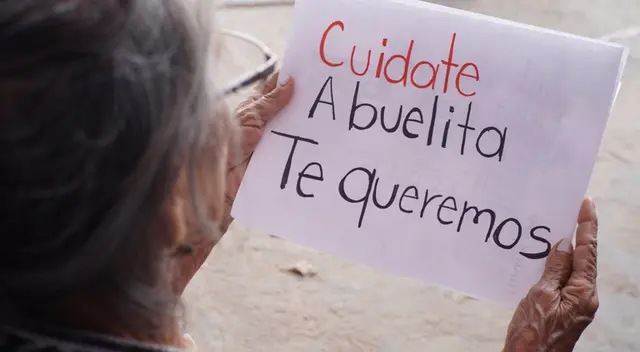 Cuidate
Abuelita
Te queremos